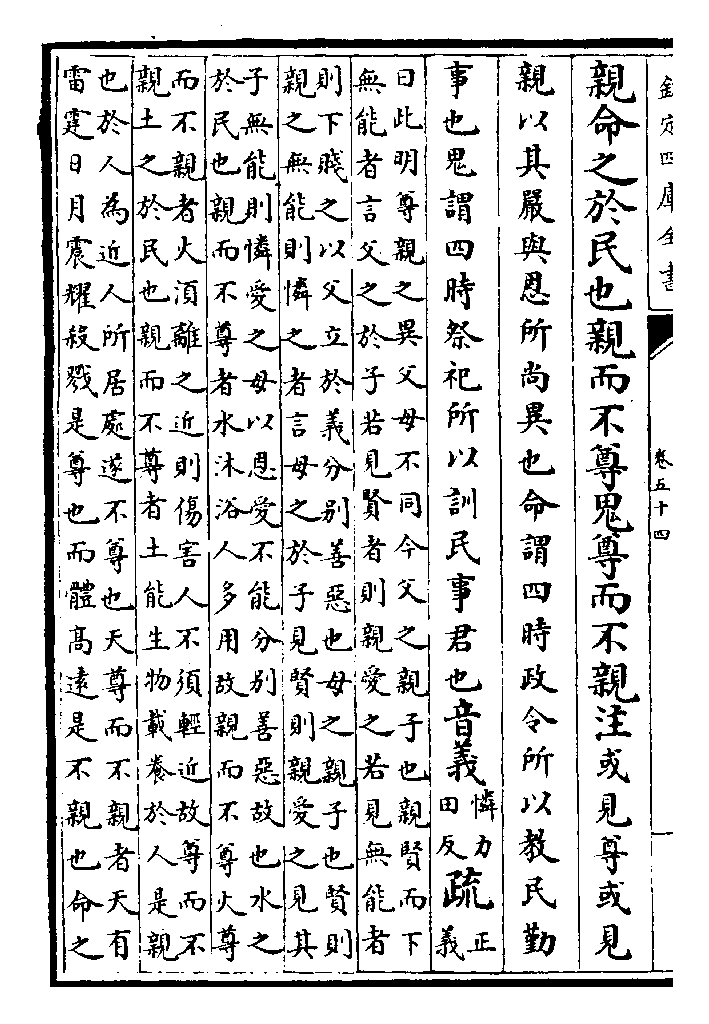 欽定四庫全書
卷五十四
親命之於民也親而不尊鬼尊而不親注或見尊或見
親以其嚴與恩所尚異也命謂四時政令所以教民勤
事也鬼謂四時祭祀所以訓民事君也音義憐力田反疏正義
曰此明尊親之異父母不同今父之親子也親賢而下
無能者言父之於子若見賢者則親愛之若見無能者
則下賤之以父立於義分別善惡也母之親子也賢則
親之無能則憐之者言母之於子見賢則親愛之見其
子無能則憐愛之母以恩愛不能分別善惡故也水之
於民也親而不尊者水沐浴人多用故親而不尊火尊
而不親者火湏離之近則傷害人不須輕近故尊而不
親土之於民也親而不尊者土能生物載養於人是親
也於人為近人所居處遂不尊也天尊而不親者天有
雷霆日月震耀殺戮是尊也而體高遠是不親也命之